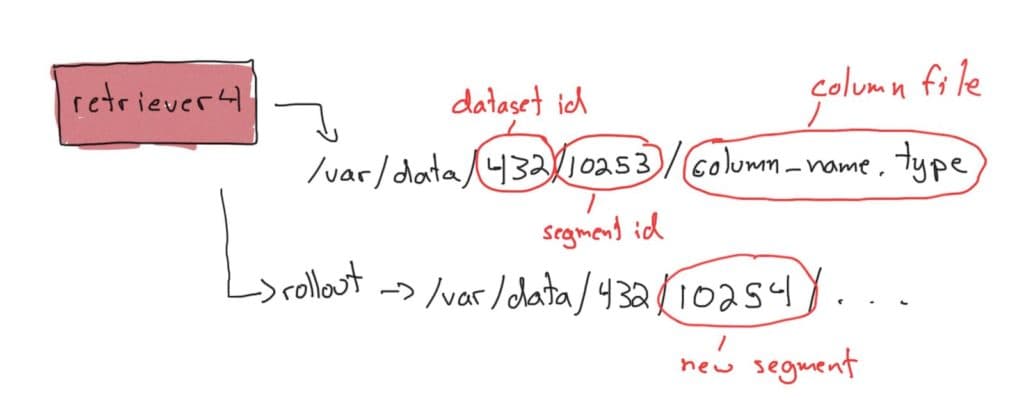 retriever4
column file
dataset id
/var/data/432/10253/column_name.type
segment id
rollout -> /var/data/432/10254/...
new segment